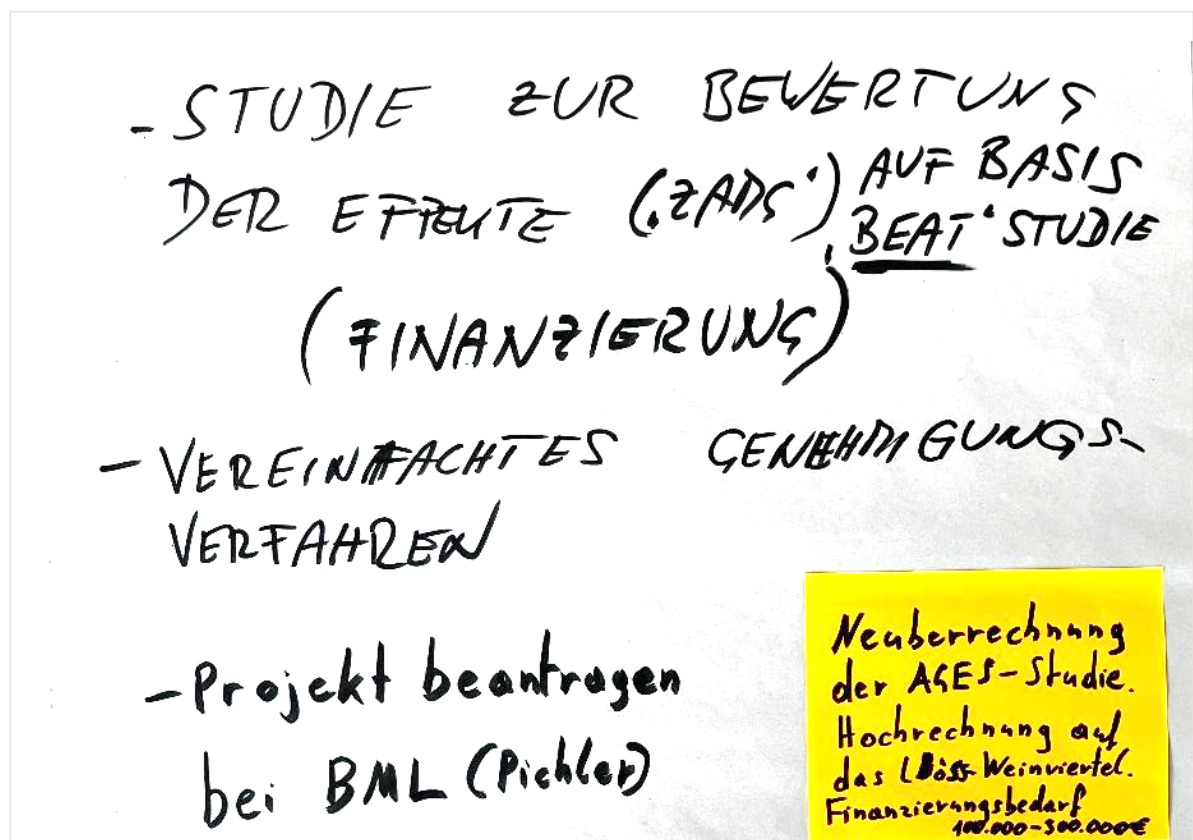 - STUDIE ZUR BEWERTUNG
DER EFFEKTE ("ZARG") AUF BASIS
"BEAT" STUDIE
(FINANZIERUNG)
- VEREINFACHTES GENEHMIGUNGS-
VERFAHREN
- Projekt beantragen
bei BML (Pichler)
Neuberrechnung
der AGES-Studie.
Hochrechnung auf
das Löss-Weinviertel.
Finanzierungsbedarf
100.000-300.000€